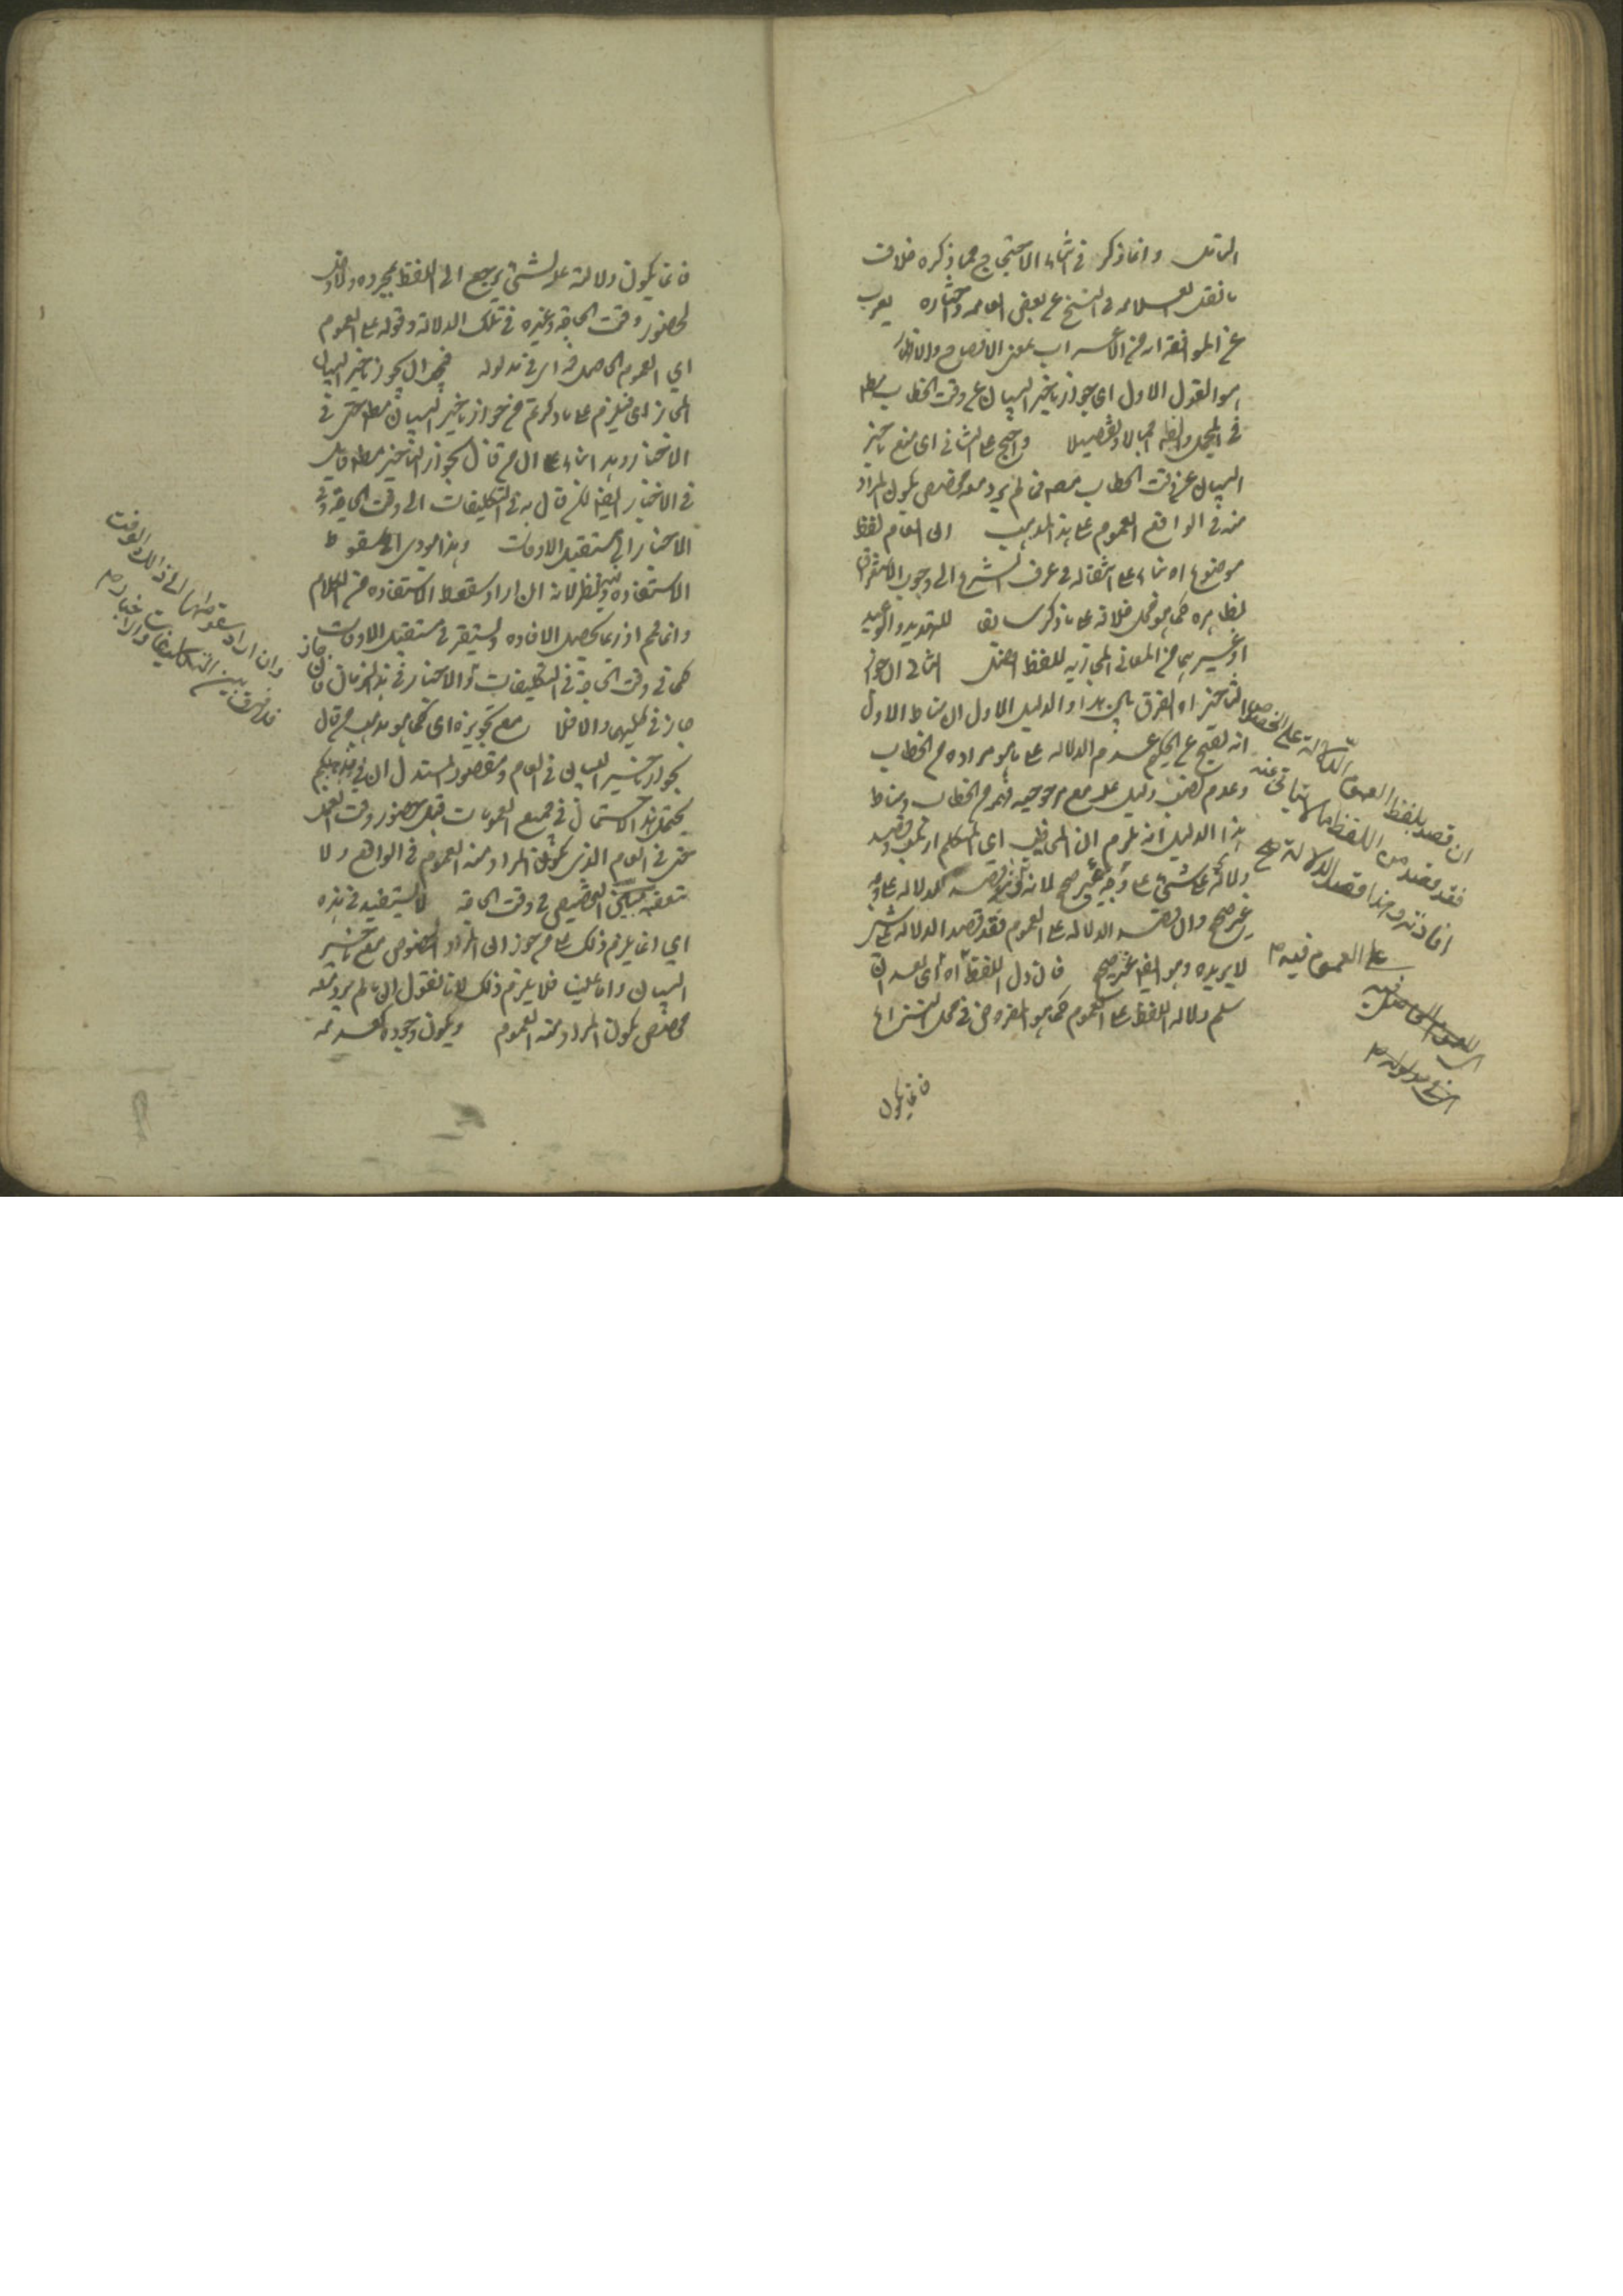 التامل وانما ذكر في اثناء الاحتجاج مما ذكره خلاف
ما نقله العلامه و الشيخ عن بعض العامه واختاره يعرب
عن الموافقة اه من الاعراب بمعنى الافصاح والاظهار
هو القول الاول اى جواز تاخير البيان عن وقت الخطاب مط
في المجمل والظ اجمالا وتفصيلا واحتج على الثاني اى منع تاخير
البيان عن وقت الخطاب فمن لم يرد معه مخصص يكون المراد
منه في الواقع العموم على هذا المذهب الى العام لفظ
موضوع اه بناء على انتقاله في عرف الشرع الى وجوب الاستغراق
بظاهره كما هو محل خلافه على ما ذكر سابقا للتهديد والوعيد
او غيرهما من المعاني المجازيه للفظ افعل الثاني ان جواز
التاخير اه الفرق بين هذا والدليل الاول ان مناط الاول
انه يقبح عن الحكيم عدم الدلاله على ما هو مراده من الخطاب
وعدم نصب دليل عليه مع مرجوحيه فهمه من الخطاب ومناط
هذا الدليل انه يلزم ان المخاطب اى المتكلم
ولالته على شىء على وجه غير صحيح لانه الدلاله على وجه
غير صحيح وان قصد الدلاله على العموم فقد قصد الدلاله على شىء
لا يريده وهو ايضا غير صحيح فان دل اللفظ اه اى بعد ان
سلم دلاله اللفظ على العموم كما هو المفروض في محل النزاع
فانما يكون
ان قصد بلفظ العموم الدلالة على الخصوص
فقد قصد من اللفظ ما لا يتاتى منه
افادته وهذا قصد الدلالة على
على العموم فيه
فانما يكون دلالته على شىء يرجع الى اللفظ بمجرده ولا دخل
لحضور وقت الحاجة وغيره في تلك الدلالة وقوله على العموم
اى العموم الحاصل فيه اى في مدلوله فجهة ان يجوز تاخير البيان
المجاز اى فيلزم على ما ذكرتم من جواز تاخير البيان مط حتى في
الاخبار وهذا بناء على ان من قال بجواز التاخير مط قائل
في الاخبار ايضا لكن قال به في التكليفات الى وقت الحاجة وفي
الاخبار الى مستقبل الاوقات وهذا مؤدى الى سقوط
الاستفاده فيه نظر لانه ان اراد سقوط الاستفاده من الكلام
دائما فم اذ ربما يحصل الافاده ويستقر في مستقبل الاوقات
كما في وقت الحاجة في التكليفات والاخبار في هذا الزمان فان جاز
جاز في كليهما والا فلا مع تجويزه اى كما هو مذهب من قال
بجواز تاخير البيان في العام ومقصود المستدل ان في مذهبكم
يحتمل هذا الاشتمال في جميع العمومات قبل حضور وقت العمل
حتى في العام الذى يكون المراد منه العموم في الواقع ولا
يتعقبه التخصيص في وقت الحاجة لا يستفيد في هذه
اى انما يلزم ذلك على من جوز ان المراد الخصوص مع تاخير
البيان واما علينا فلا يلزم ذلك لانا نقول ان ما لم يرد معه
مخصص يكون المراد منه العموم ويكون وجوده كعدمه
وان اراد سقوطها الى ذلك الوقت
فلا فرق بين التكليفات والاخبار